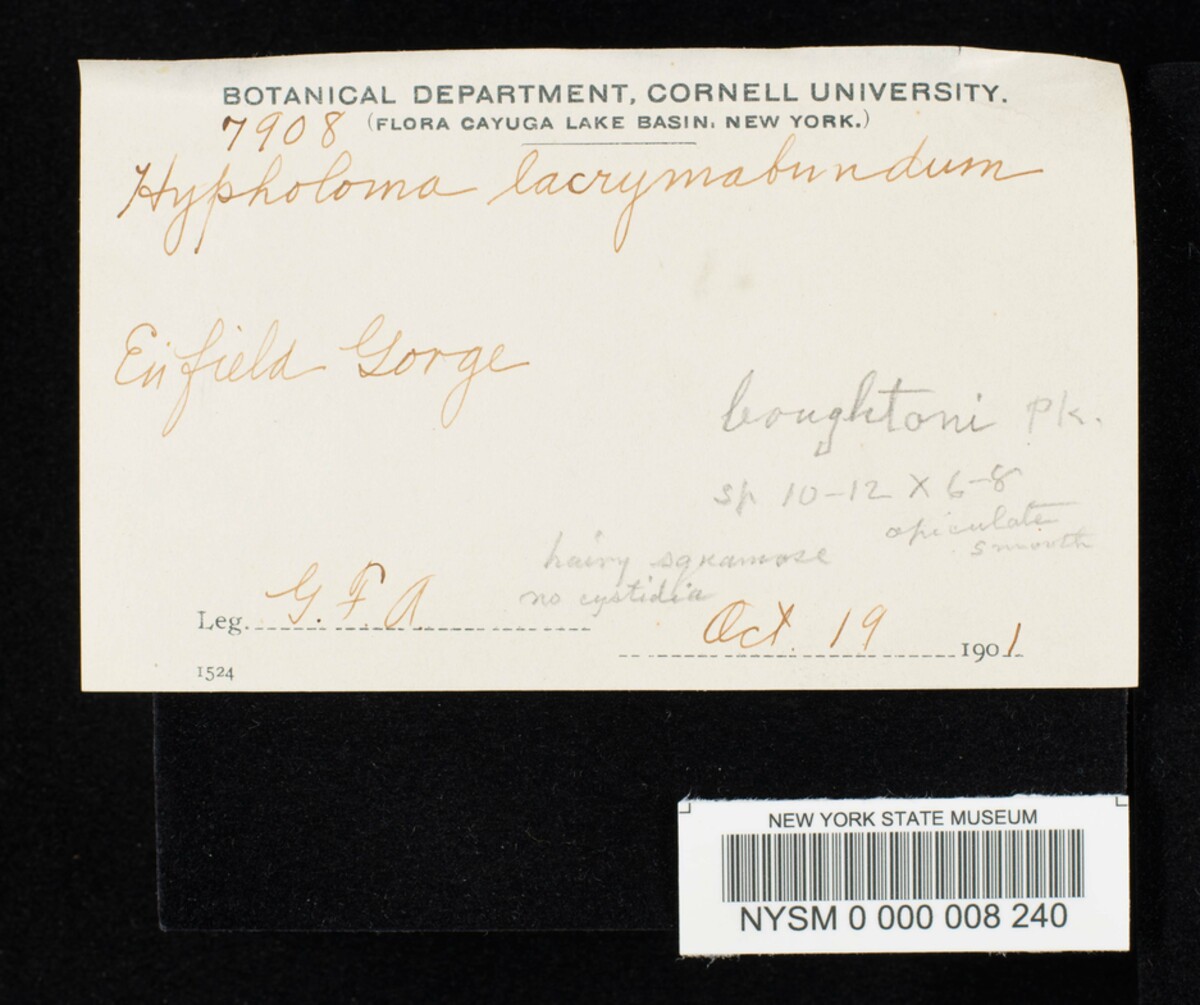 BOTANICAL DEPARTMENT, CORNELL UNIVERSITY.
(FLORA CAYUGA LAKE BASIN, NEW YORK.)
7908
Hypholoma lacrymabundum
Enfield Gorge
boughtoni Pk.
sp 10-12 X 6-8
apiculate
smooth
hairy sqxamose
no cystidia
Leg. G. F. A.
Oct. 19 1901
1524
NEW YORK STATE MUSEUM
NYSM 0 000 008 240